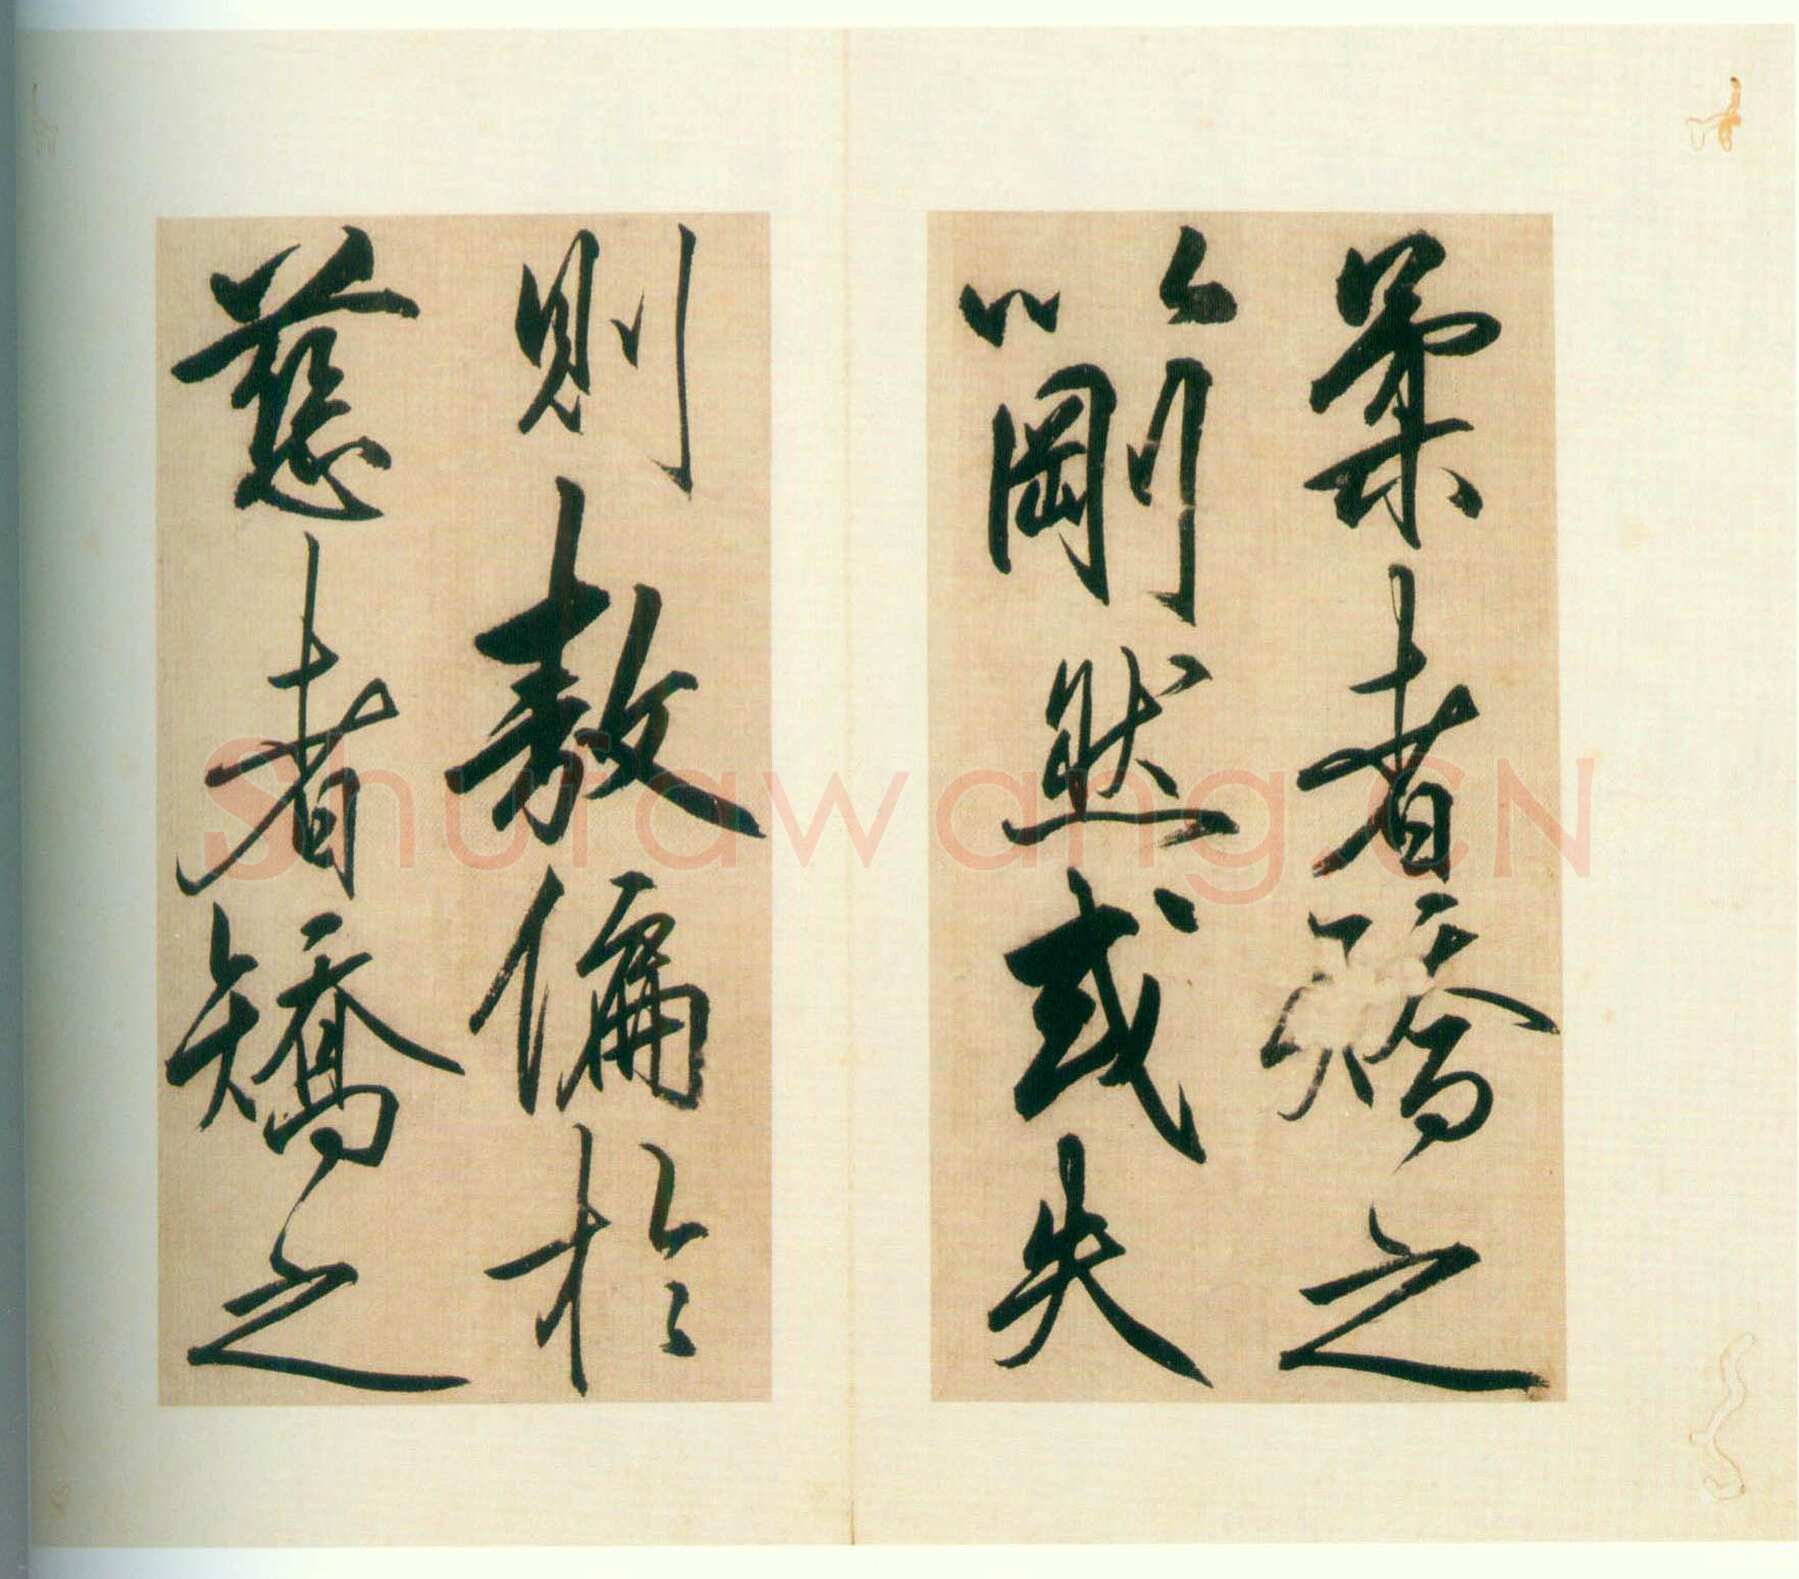 柔者矯之
以剛然或失
則敖偏於
慈者矯之
Shufawang.CN